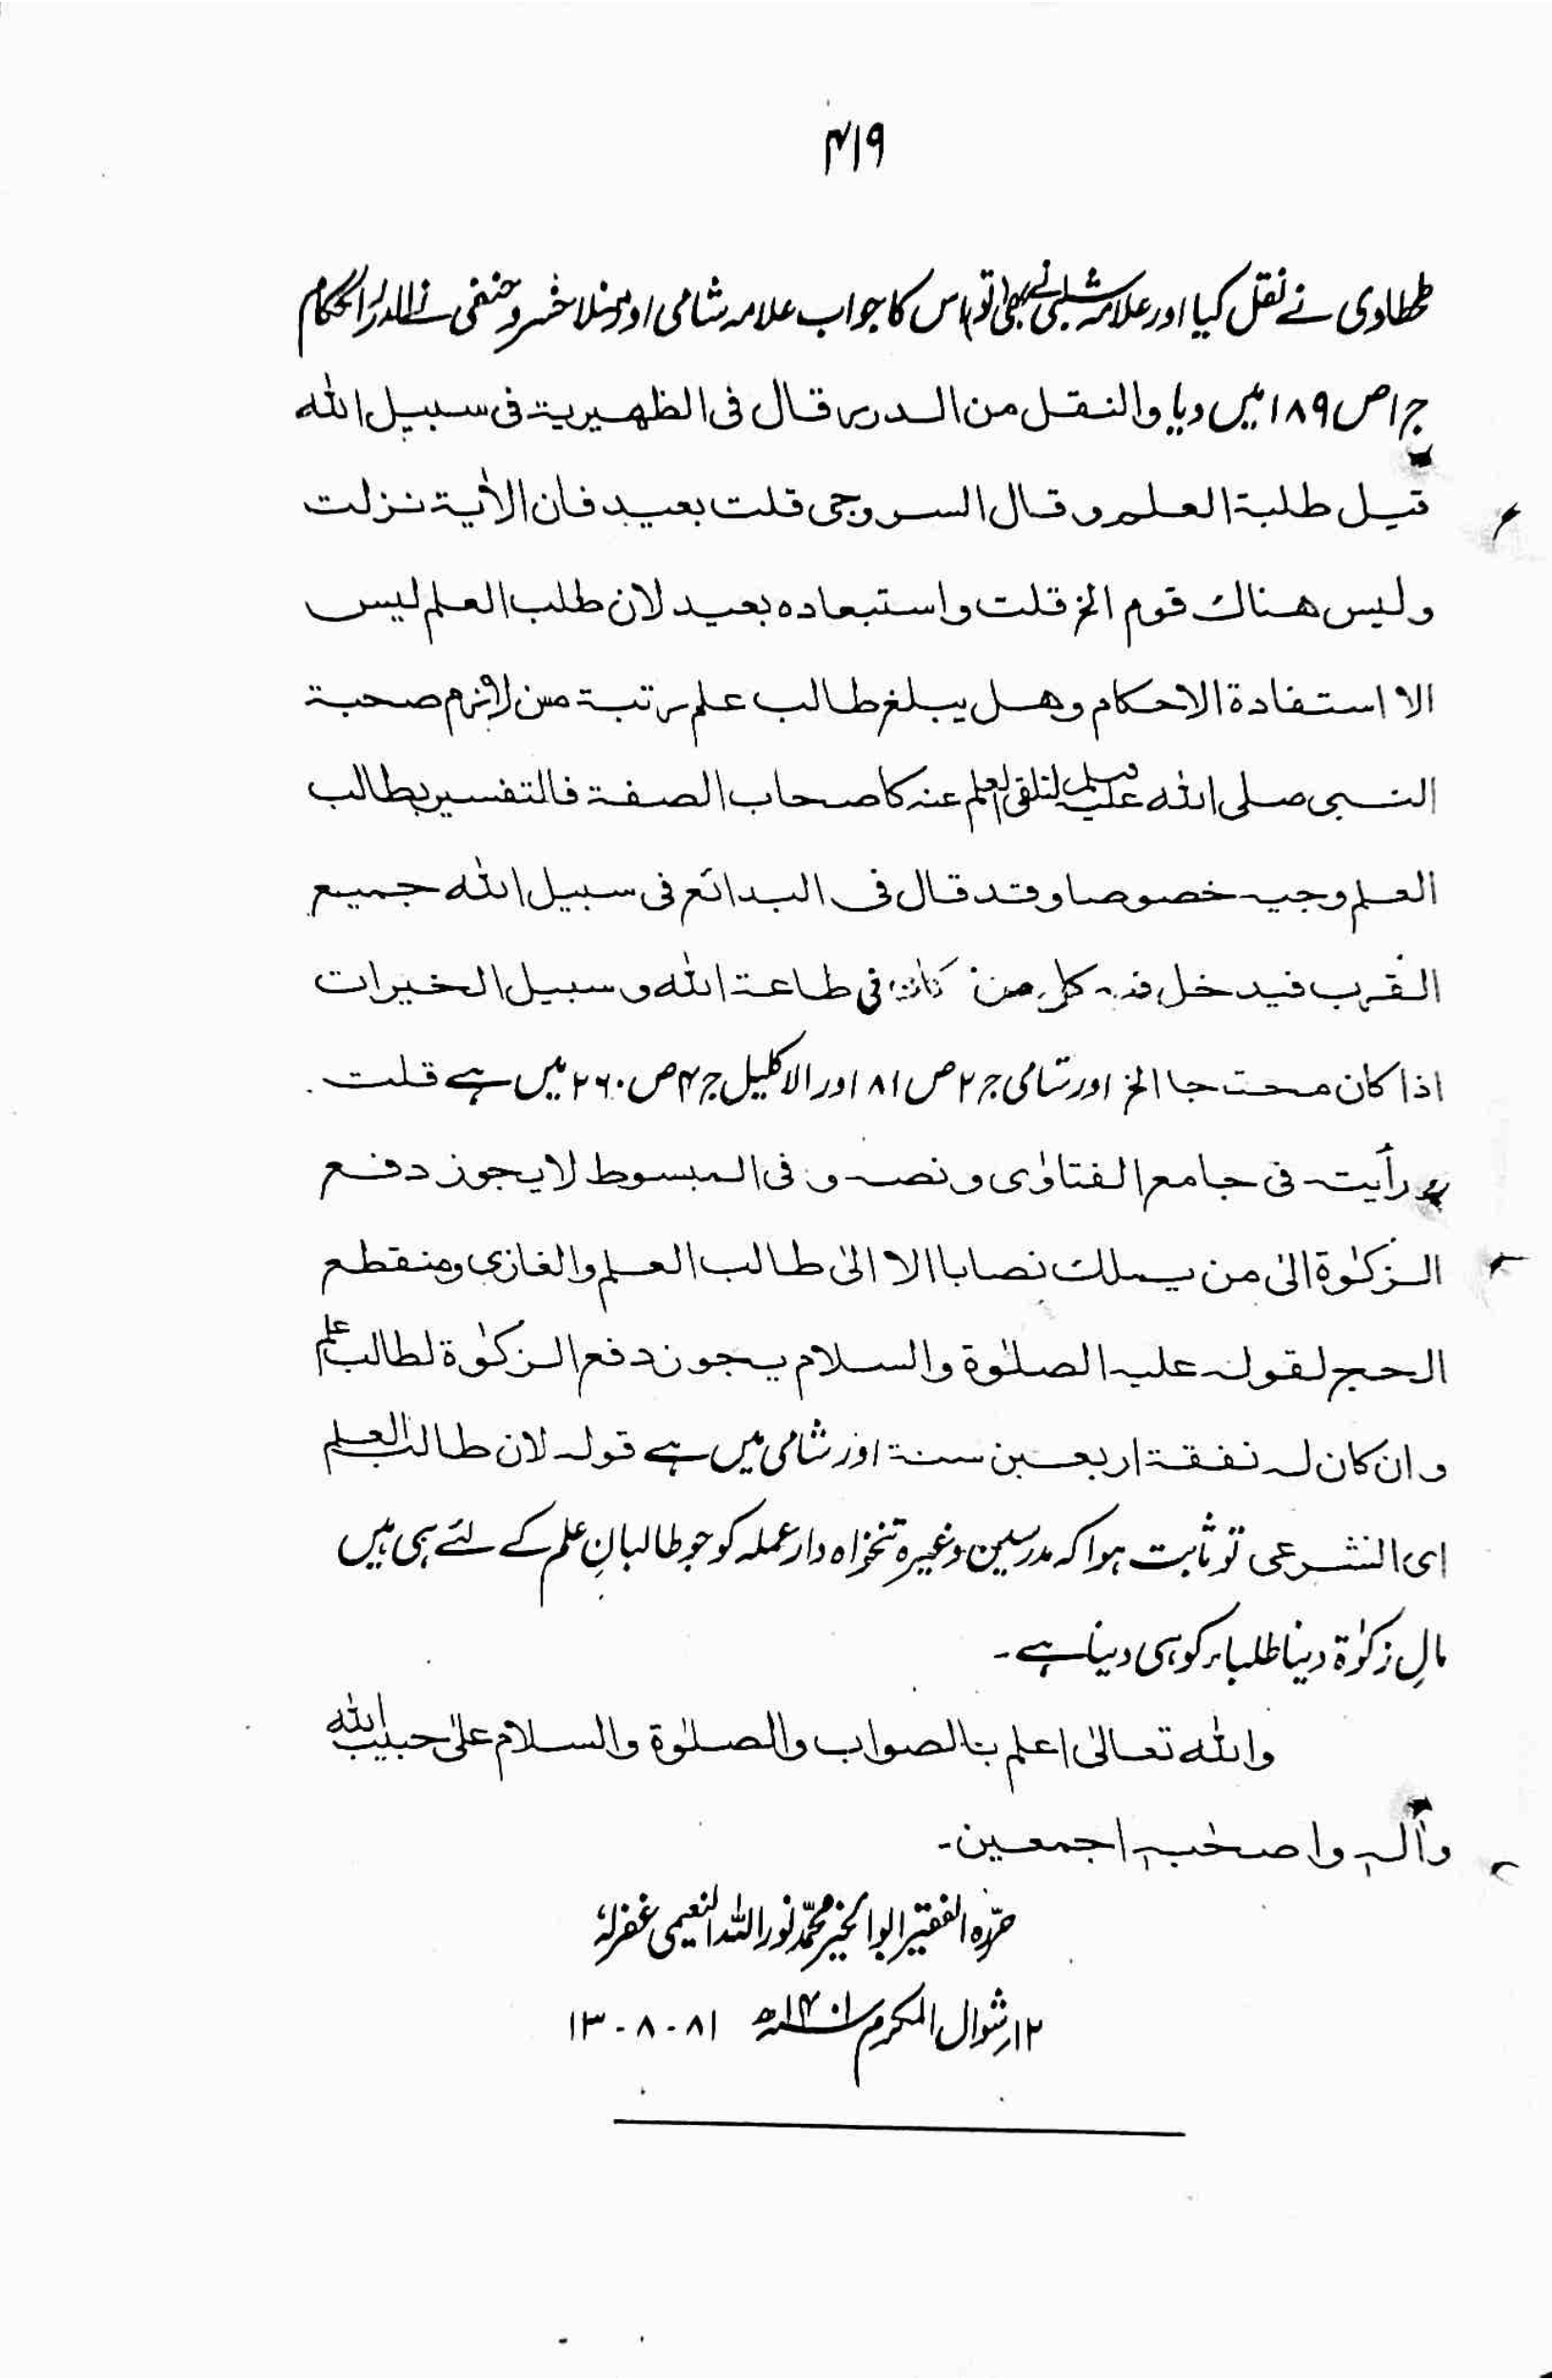 ۴۱۹
طحطاوی نے نقل کیا اور علامہ شلبی نے بھی تو اس کا جواب علامہ شامی اور منلا خسرو حنفی نے الدرر الحکام
ج ۱ ص ۱۸۹ میں دیا والنقل من الدرر قال فی الظهیریة فی سبیل الله
قیل طلبة العلم و قال السروجی قلت بعید فان الاٰیة نزلت
ولیس هناك قوم الخ قلت واستبعاده بعید لان طلب العلم لیس
الا استفادة الاحکام وهل یبلغ طالب علم رتبة من لازم صحبة
النبی صلی الله علیه وسلم لتلقی العلم عنه کاصحاب الصفة فالتفسیر بطالب
العلم وجیه خصوصا وقد قال فی البدائع فی سبیل الله جمیع
القرب فیدخل فیه کل من کان فی طاعة الله و سبیل الخیرات
اذا کان محتاجا الخ اور شامی ج ۲ ص ۸۱ اور الاکلیل ج ۴ ص ۲۶۰ میں ہے قلت
و رأیت فی جامع الفتاوٰی و نصه و فی المبسوط لا یجوز دفع
الزکوٰة الیٰ من یملك نصابا الا الیٰ طالب العلم والغازی ومنقطع
الحج لقوله علیه الصلوٰة والسلام یجوز دفع الزکوٰة لطالب علم
و ان کان له نفقة اربعین سنة اور شامی میں ہے قوله لان طالب العلم
ای الشرعی تو ثابت ہوا کہ مدرسین وغیرہ تنخواہ دار عملہ کو جو طالبانِ علم کے لئے ہی ہیں
مالِ زکوٰۃ دینا طلباء کو ہی دینا ہے۔
والله تعالیٰ اعلم بالصواب والصلوٰة والسلام علیٰ حبیب الله
واٰلہٖ واصحٰبہٖ اجمعین۔
حرّرہ الفقیر ابوالخیر محمّد نور اللہ النعیمی غفرلہٗ
۱۲ر شوال المکرم ۱۴۰۱ھ ۸۱-۸-۱۳